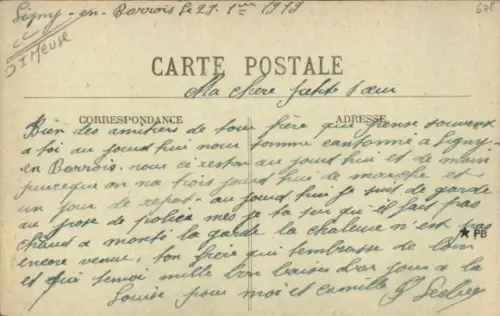 Ligny-en-Barrois le 29. 1913
671
D Meuse
CARTE POSTALE
Ma chere petite sœur
CORRESPONDANCE
ADRESSE
Bien des amitiers de ton frère qui pense souveux
a toi au jourd hui nous somme cantonné a Ligny-
en Barrois. nous ci reston au jourd hui et de main
parceque on na trois jourd hui de marche et
un jour de repot. au jourd hui je suit de garde
au pose de police mes je ta sur qu'il fait pas
chaud a monté la garde la chaleur n'est pas
encore venu, ton frère qui tembrasse de loin
et qui tenvoi mille bon baiser
Louise pour moi et camille
★ PB